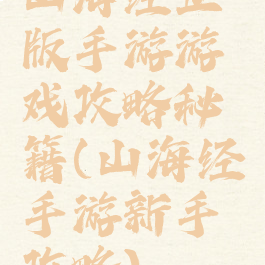 山海经正
版手游游
戏攻略秘
籍(山海经
手游新手
攻略)